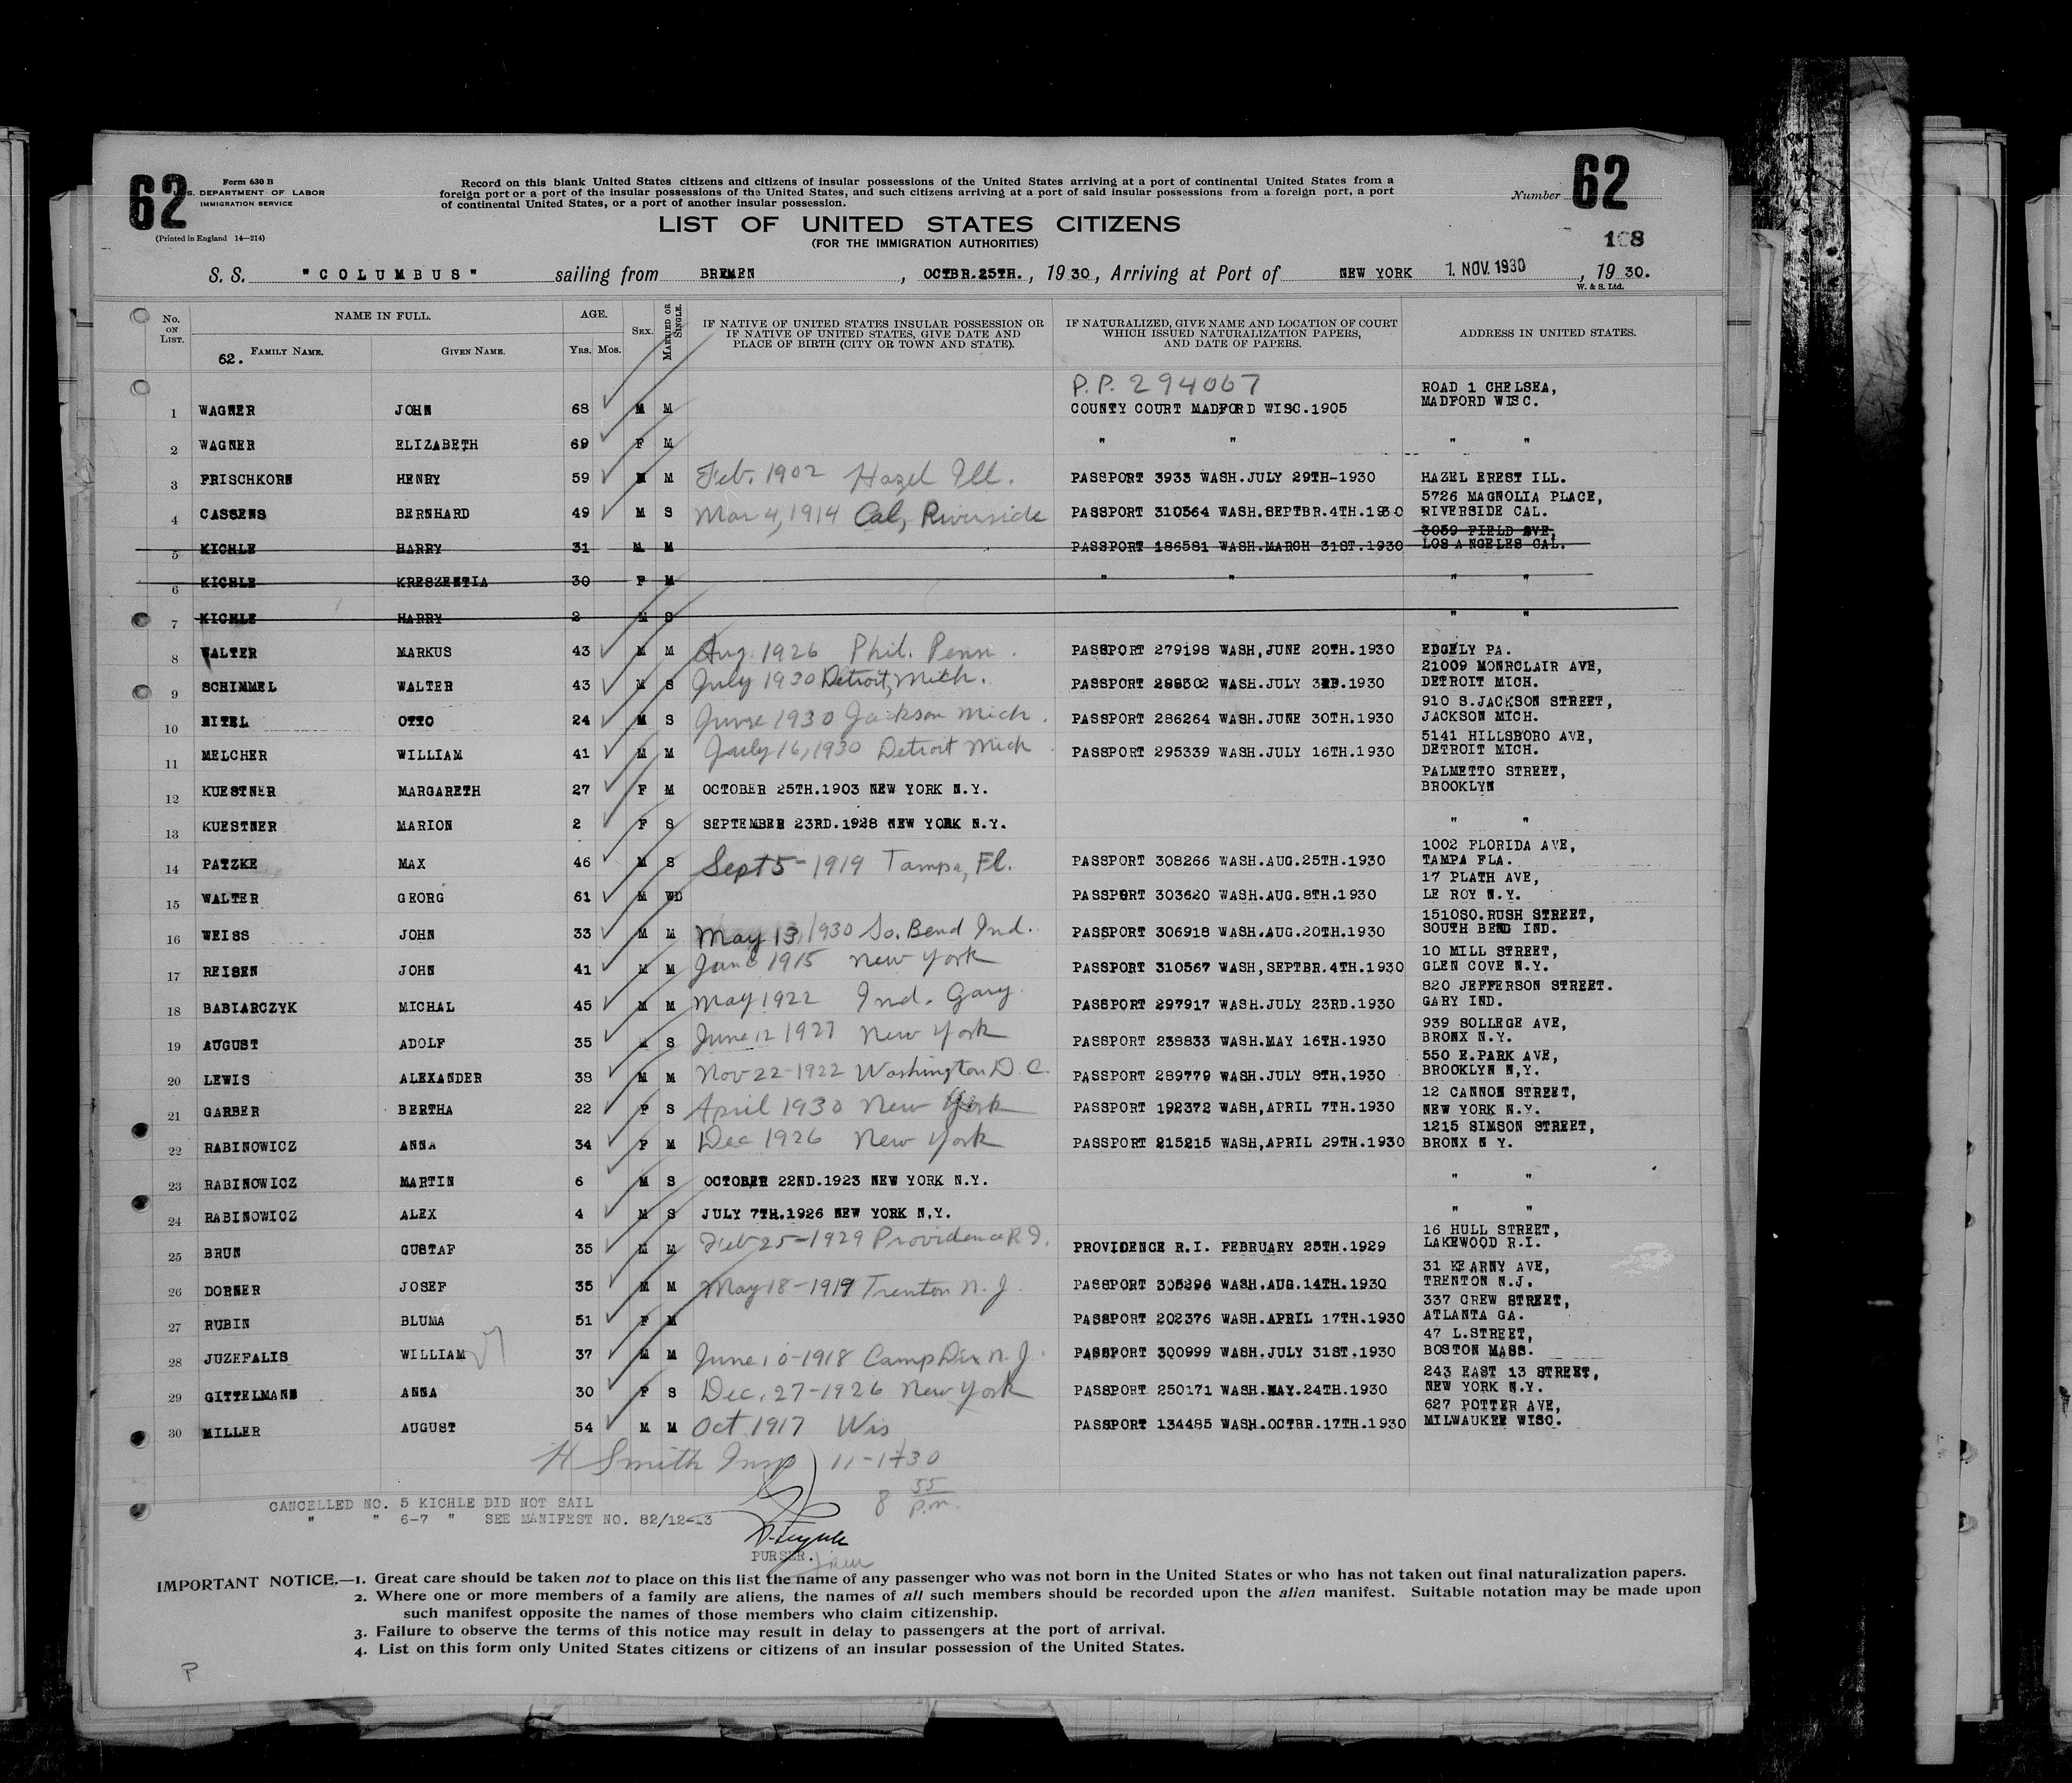 62
Form 630 B
U.S. DEPARTMENT OF LABOR
IMMIGRATION SERVICE
(Printed in England 14—214)
Record on this blank United States citizens and citizens of insular possessions of the United States arriving at a port of continental United States from a
foreign port or a port of the insular possessions of the United States, and such citizens arriving at a port of said insular possessions from a foreign port, a port
of continental United States, or a port of another insular possession.
Number 62
LIST OF UNITED STATES CITIZENS
(FOR THE IMMIGRATION AUTHORITIES)
168
S. S. "COLUMBUS" sailing from BREMEN, OCTBR.25TH., 1930, Arriving at Port of NEW YORK 1. NOV. 1930, 1930.
W. & S. Ltd.
No. ON LIST. NAME IN FULL. AGE. SEX. MARRIED OR SINGLE. IF NATIVE OF UNITED STATES INSULAR POSSESSION OR IF NATIVE OF UNITED STATES, GIVE DATE AND PLACE OF BIRTH (CITY OR TOWN AND STATE). IF NATURALIZED, GIVE NAME AND LOCATION OF COURT WHICH ISSUED NATURALIZATION PAPERS, AND DATE OF PAPERS. ADDRESS IN UNITED STATES.
62. FAMILY NAME. GIVEN NAME. Yrs. Mos.
P.P. 294067 ROAD 1 CHELSEA,
1 WAGNER JOHN 68 M M COUNTY COURT MADFORD WISC.1905 MADFORD WISC.
2 WAGNER ELIZABETH 69 F M " " " "
3 FRISCHKORN HENRY 59 M M Feb. 1902 Hazel Ill. PASSPORT 3933 WASH.JULY 29TH-1930 HAZEL EREST ILL.
5726 MAGNOLIA PLACE,
4 CASSENS BERNHARD 49 M S Mar 4, 1914 Cal, Riverside PASSPORT 310564 WASH.SEPTBR.4TH.1930 RIVERSIDE CAL.
3059 FIELD AVE,
5 KICHLE HARRY 31 M M PASSPORT 186581 WASH.MARCH 31ST.1930 LOS ANGELES CAL.
6 KICHLE KRESZENTIA 30 F M " " " "
7 KICHLE HARRY 2 M S " "
8 WALTER MARKUS 43 M M Aug. 1926 Phil. Penn. PASSPORT 279198 WASH,JUNE 20TH.1930 EDGELY PA.
21009 MONRCLAIR AVE,
9 SCHIMMEL WALTER 43 M S July 1930 Detroit, Mich. PASSPORT 288302 WASH.JULY 3RD.1930 DETROIT MICH.
910 S.JACKSON STREET,
10 EITEL OTTO 24 M S June 1930 Jackson Mich. PASSPORT 286264 WASH.JUNE 30TH.1930 JACKSON MICH.
5141 HILLSBORO AVE,
11 MELCHER WILLIAM 41 M M July 16, 1930 Detroit Mich PASSPORT 295339 WASH.JULY 16TH.1930 DETROIT MICH.
PALMETTO STREET,
12 KUESTNER MARGARETH 27 F M OCTOBER 25TH.1903 NEW YORK N.Y. BROOKLYN
13 KUESTNER MARION 2 F S SEPTEMBER 23RD.1928 NEW YORK N.Y. " "
1002 FLORIDA AVE,
14 PATZKE MAX 46 M S Sept 5-1919 Tampa, Fl. PASSPORT 308266 WASH.AUG.25TH.1930 TAMPA FLA.
17 PLATH AVE,
15 WALTER GEORG 61 M WD PASSPORT 303620 WASH.AUG.8TH.1930 LE ROY N.Y.
1510SO.RUSH STREET,
16 WEISS JOHN 33 M M May 13, 1930 So. Bend Ind. PASSPORT 306918 WASH.AUG.20TH.1930 SOUTH BEND IND.
10 MILL STREET,
17 REISEN JOHN 41 M M June 1915 New York PASSPORT 310567 WASH,SEPTBR.4TH.1930 GLEN COVE N.Y.
820 JEFFERSON STREET.
18 BABIARCZYK MICHAL 45 M M May 1922 Ind. Gary. PASSPORT 297917 WASH.JULY 23RD.1930 GARY IND.
939 SOLLEGE AVE,
19 AUGUST ADOLF 35 M S June 12 1927 New York PASSPORT 238833 WASH.MAY 16TH.1930 BRONX N.Y.
550 E.PARK AVE,
20 LEWIS ALEXANDER 38 M M Nov 22-1922 Washington D.C. PASSPORT 289779 WASH.JULY 8TH.1930 BROOKLYN N,Y.
12 CANNON STREET,
21 GARBER BERTHA 22 F S April 1930 New York PASSPORT 192372 WASH,APRIL 7TH.1930 NEW YORK N.Y.
1215 SIMSON STREET,
22 RABINOWICZ ANNA 34 F M Dec 1926 New York PASSPORT 215215 WASH,APRIL 29TH.1930 BRONX N Y.
23 RABINOWICZ MARTIN 6 M S OCTOBER 22ND.1923 NEW YORK N.Y. " "
24 RABINOWICZ ALEX 4 M S JULY 7TH.1926 NEW YORK N,Y. " "
16 HULL STREET,
25 BRUN GUSTAF 35 M M Feb 25-1929 Providence R.I. PROVIDENCE R.I. FEBRUARY 25TH.1929 LAKEWOOD R.I.
31 KEARNY AVE,
26 DORNER JOSEF 35 M M May 18-1919 Trenton N.J. PASSPORT 305296 WASH.AUG.14TH.1930 TRENTON N.J.
337 CREW STREET,
27 RUBIN BLUMA 51 F M PASSPORT 202376 WASH.APRIL 17TH.1930 ATLANTA GA.
47 L.STREET,
28 JUZEFALIS WILLIAM 37 M M June 10-1918 Camp Dix N.J. PASSPORT 300999 WASH.JULY 31ST.1930 BOSTON MASS.
243 EAST 13 STREET,
29 GITTELMANN ANNA 30 F S Dec. 27-1926 New York PASSPORT 250171 WASH.MAY.24TH.1930 NEW YORK N.Y.
627 POTTER AVE,
30 MILLER AUGUST 54 M M Oct 1917 Wis PASSPORT 134485 WASH.OCTBR.17TH.1930 MILWAUKEE WISC.
H Smith Insp 11-1-30
8 55 p.m.
CANCELLED NO. 5 KICHLE DID NOT SAIL
" " 6-7 " SEE MANIFEST NO. 82/12-13
PURSER.
IMPORTANT NOTICE.—1. Great care should be taken not to place on this list the name of any passenger who was not born in the United States or who has not taken out final naturalization papers.
2. Where one or more members of a family are aliens, the names of all such members should be recorded upon the alien manifest. Suitable notation may be made upon
such manifest opposite the names of those members who claim citizenship.
3. Failure to observe the terms of this notice may result in delay to passengers at the port of arrival.
4. List on this form only United States citizens or citizens of an insular possession of the United States.
P